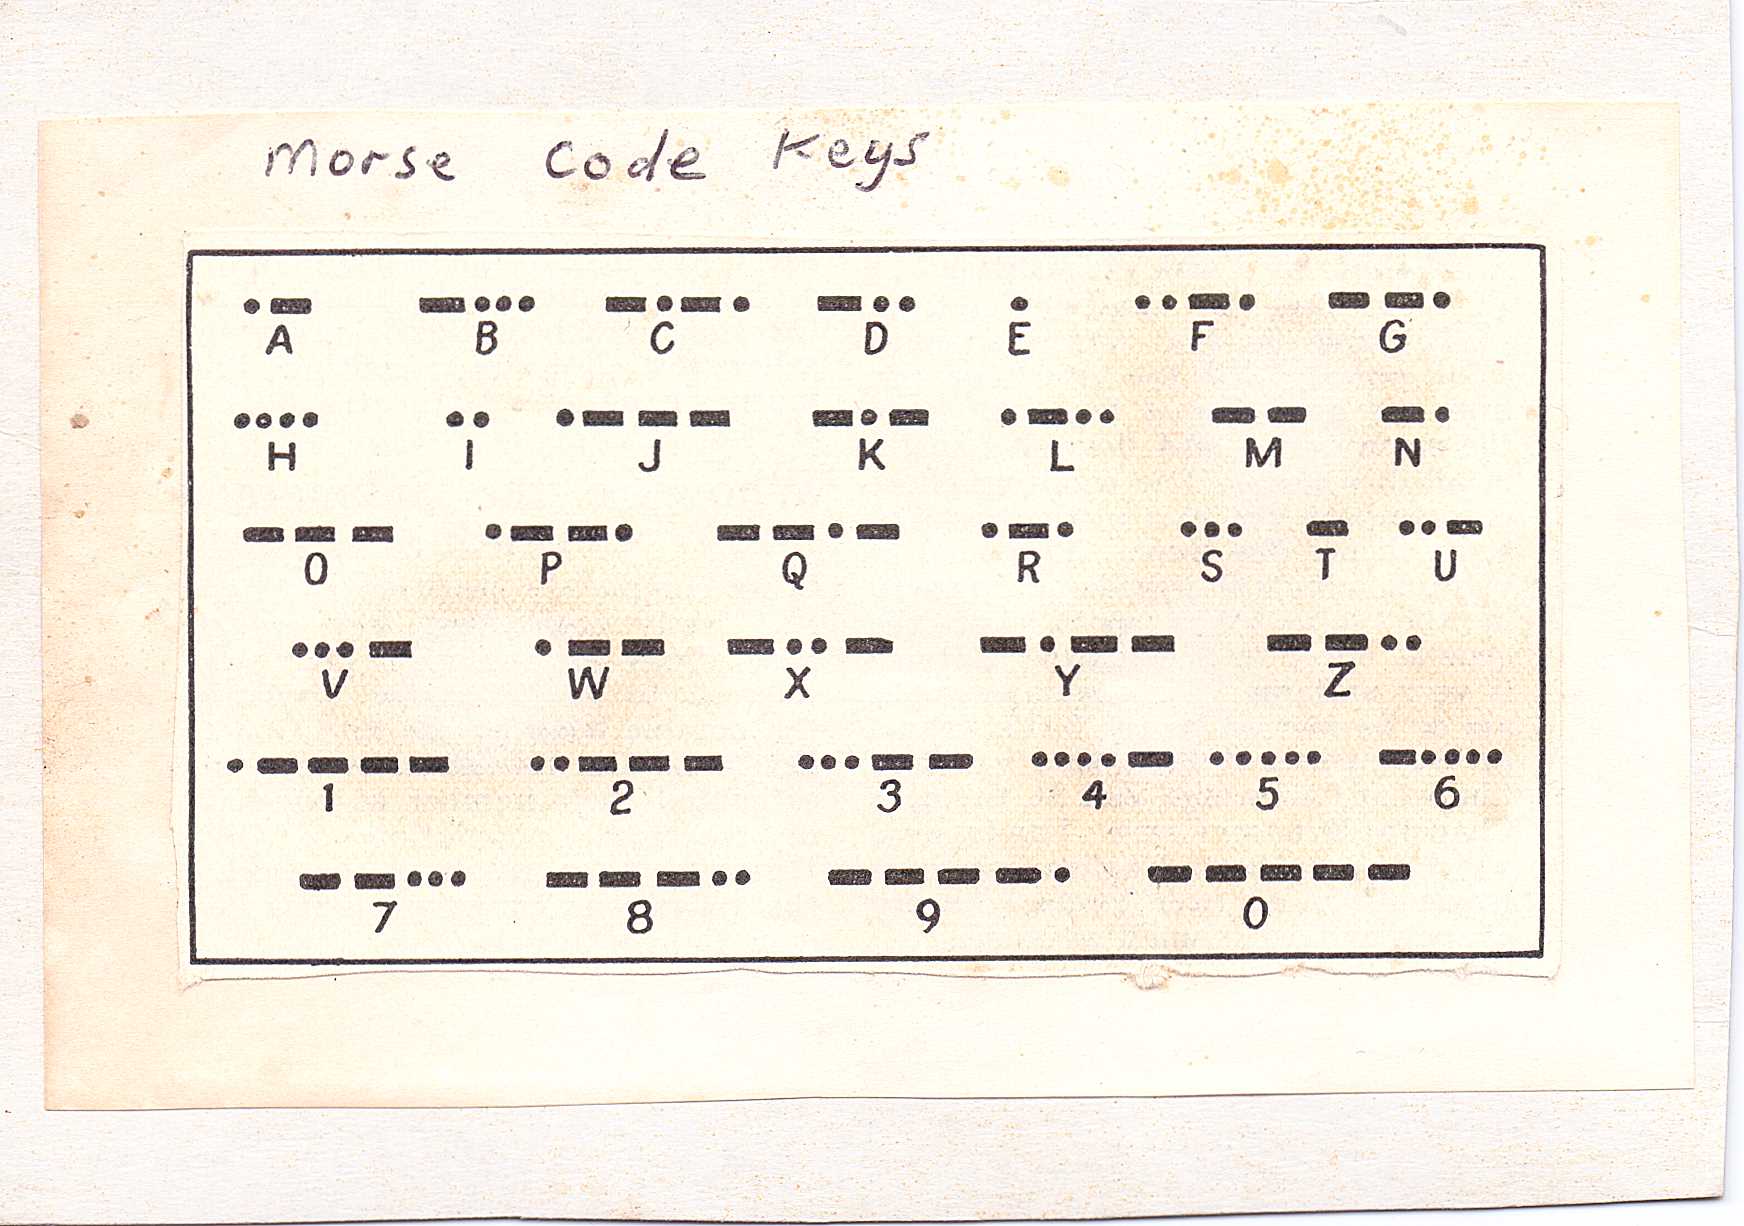 Morse Code Keys
A B C D E F G
H I J K L M N
O P Q R S T U
V W X Y Z
1 2 3 4 5 6
7 8 9 0